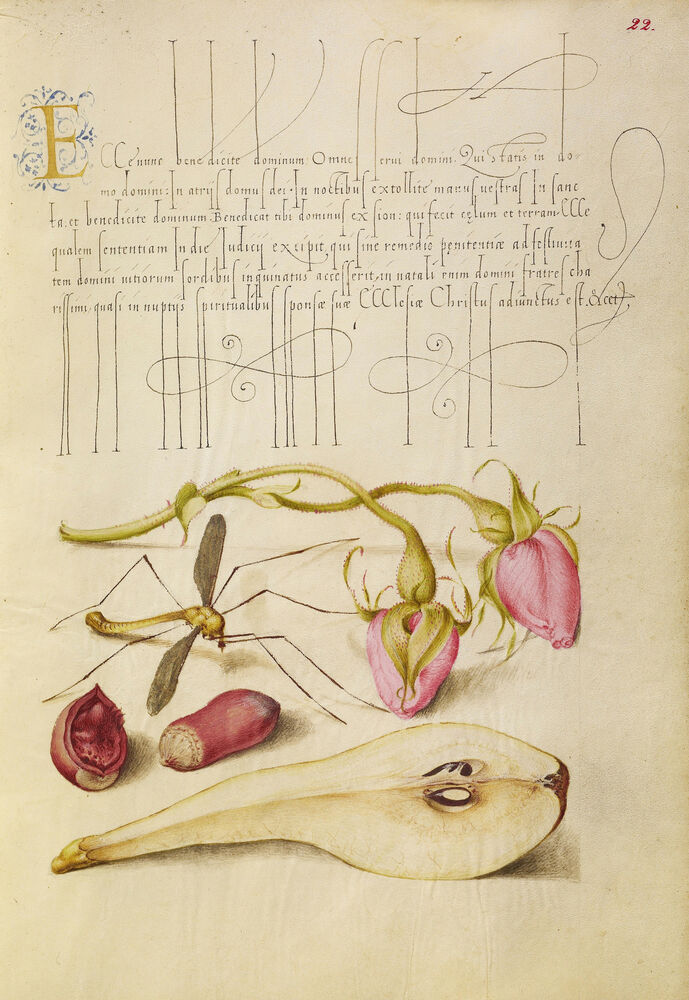 22.
ECCe nunc benedicite dominum: Omnes serui domini. Qui statis in do-
mo domini: In atrijs domus dei. In noctibus extollite manus uestras In sanc
ta, et benedicite dominum. Benedicat tibi dominus ex sion: qui fecit cęlum et terram. Ille
qualem sententiam In die Judicij excipit, qui sine remedio penitentiæ ad festiuita
tem domini uitiorum sordibus inquinatus accesserit, in natali enim domini fratres cha
rissimi, quasi in nuptijs spiritualibus sponsæ suæ ECClesiæ Christus adiunctus est.